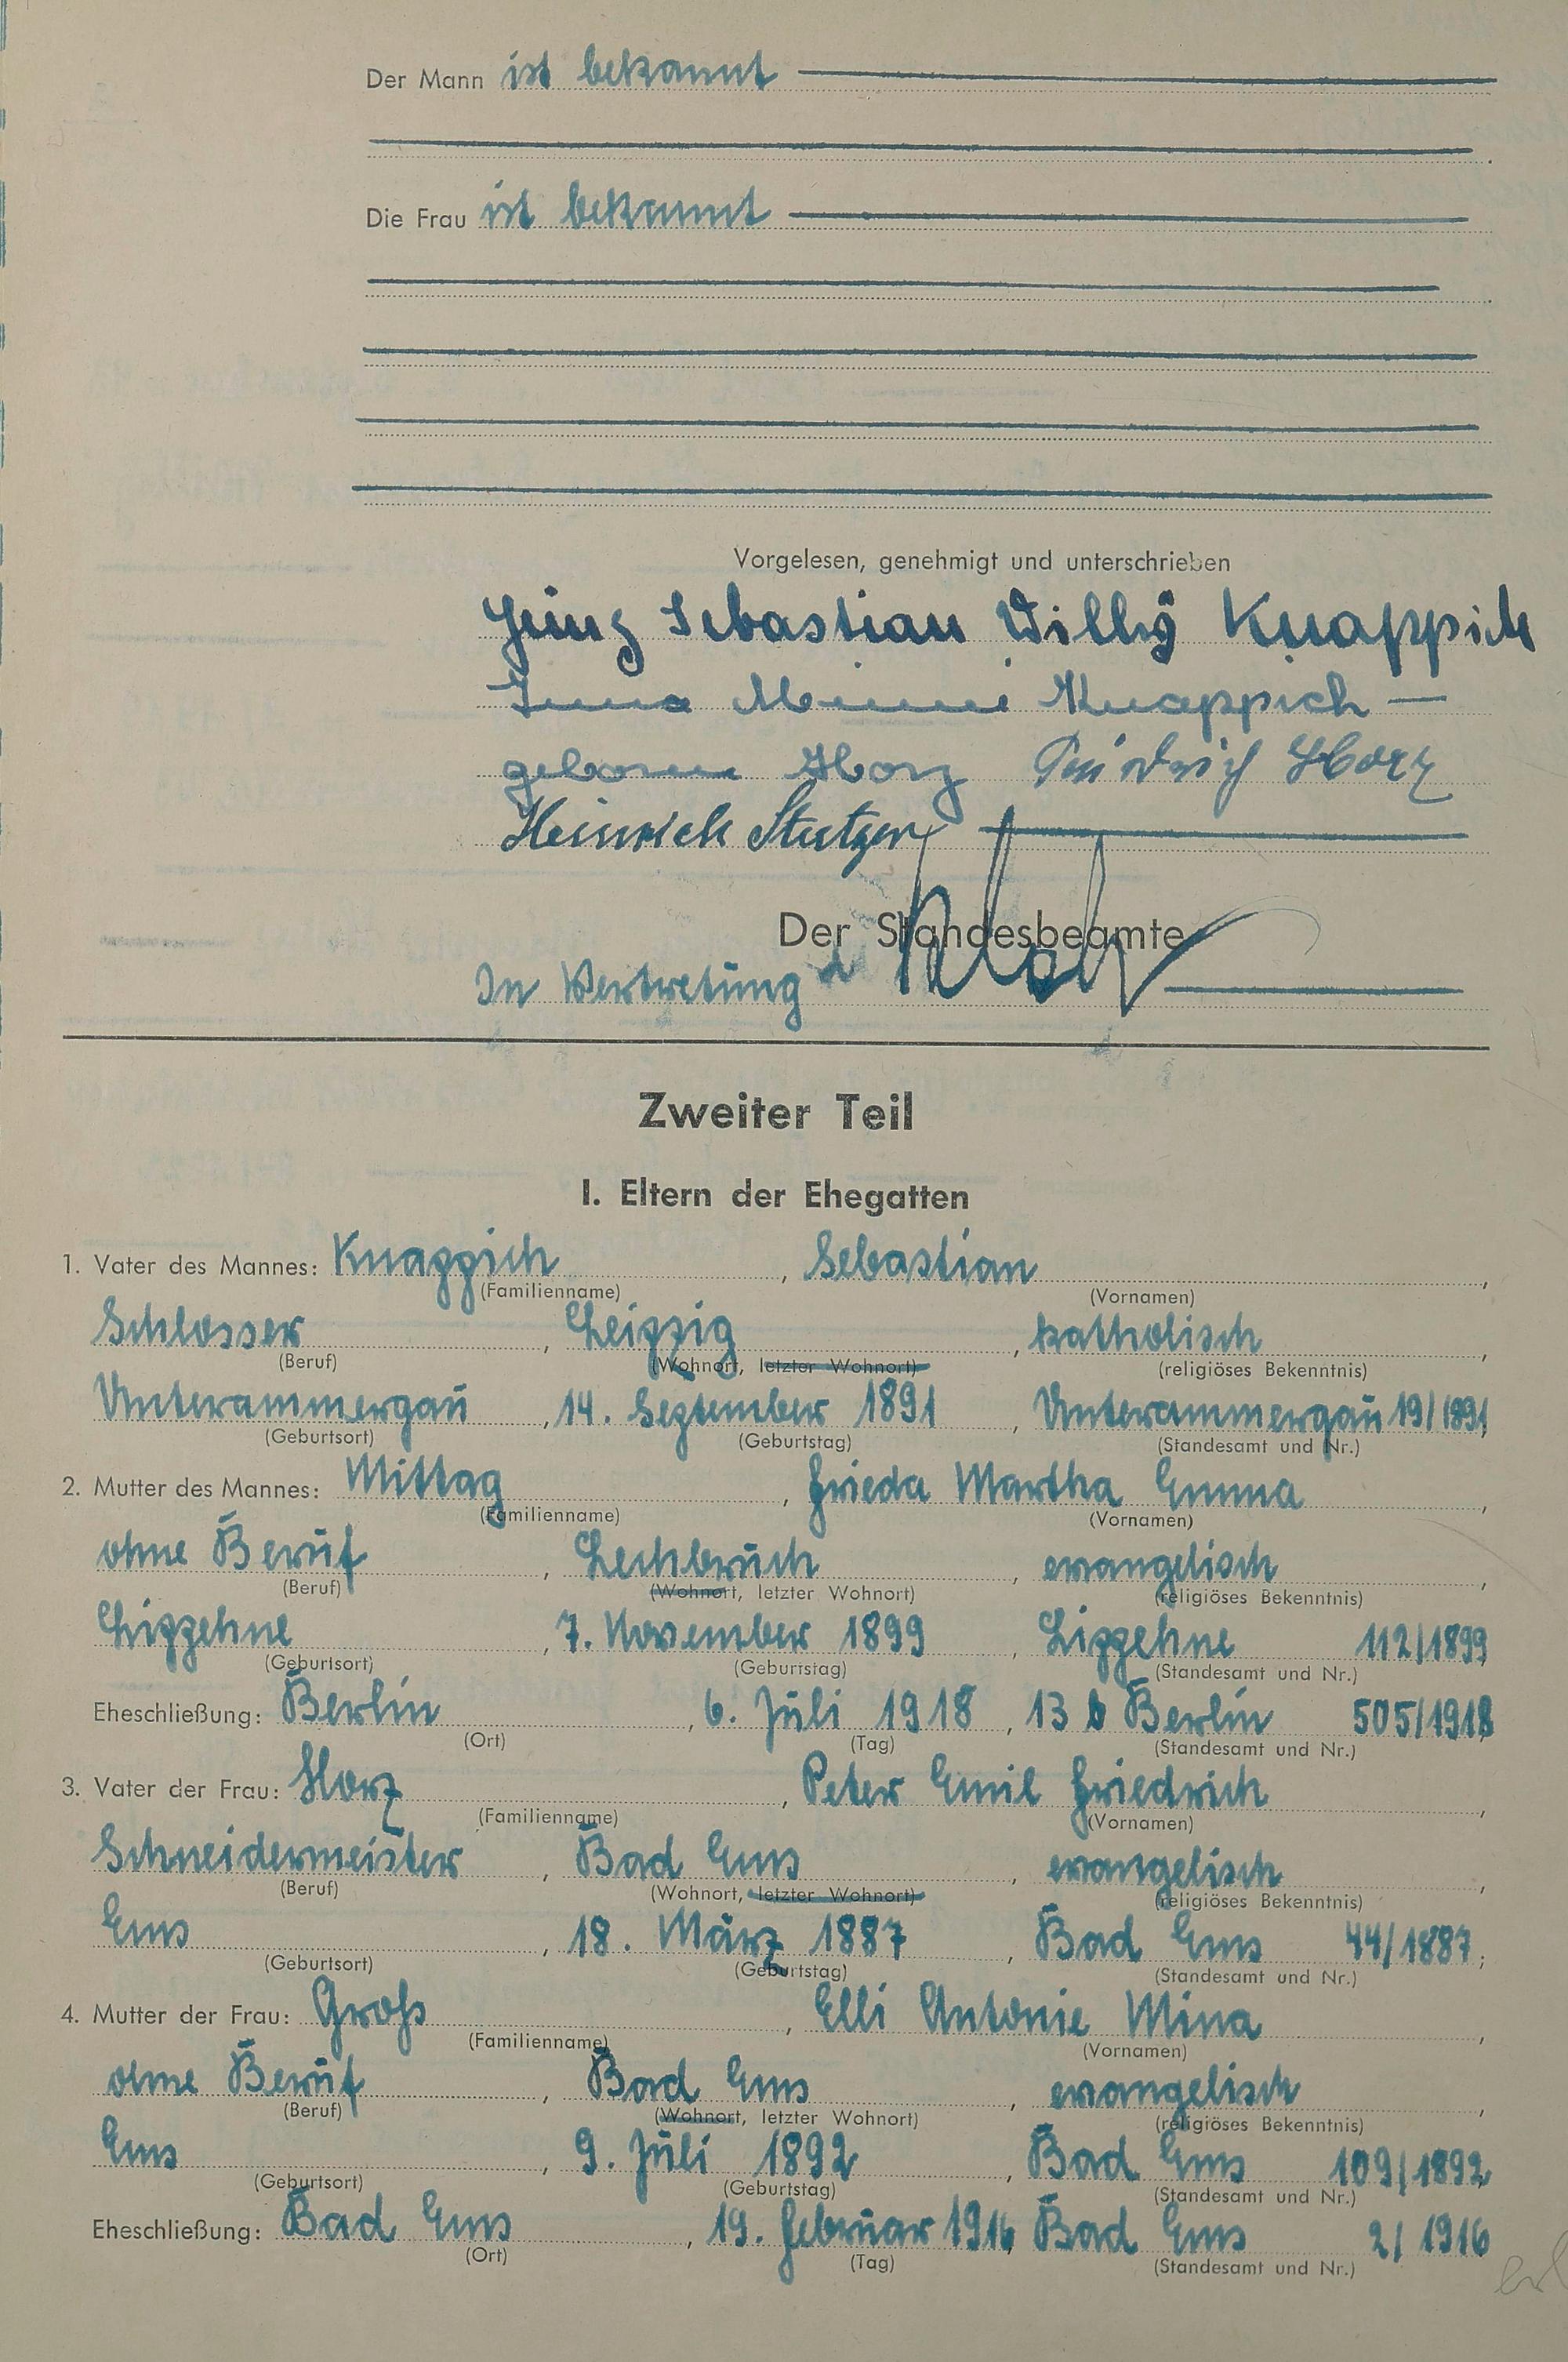 Der Mann ist bekannt
Die Frau ist bekannt
Vorgelesen, genehmigt und unterschrieben
Heinz Sebastian Willy Knappich
Minni Knappich
geborene Horz Friedrich Horz
Heinrich Stutzer
Der Standesbeamte
In Vertretung
Zweiter Teil
I. Eltern der Ehegatten
1. Vater des Mannes: Knappich, Sebastian,
(Familienname) (Vornamen)
Schlosser, Leipzig, katholisch,
(Beruf) (Wohnort, letzter Wohnort) (religiöses Bekenntnis)
Unterammergau, 14. September 1891, Unterammergau 19/1891,
(Geburtsort) (Geburtstag) (Standesamt und Nr.)
2. Mutter des Mannes: Mittag, Frieda Martha Emma,
(Familienname) (Vornamen)
ohne Beruf, Lechbruch, evangelisch,
(Beruf) (Wohnort, letzter Wohnort) (religiöses Bekenntnis)
Lippehne, 7. November 1899, Lippehne 112/1899
(Geburtsort) (Geburtstag) (Standesamt und Nr.)
Eheschließung: Berlin, 6. Juli 1918, 13 b Berlin 505/1918
(Ort) (Tag) (Standesamt und Nr.)
3. Vater der Frau: Horz, Peter Emil Friedrich,
(Familienname) (Vornamen)
Schneidermeister, Bad Ems, evangelisch,
(Beruf) (Wohnort, letzter Wohnort) (religiöses Bekenntnis)
Ems, 18. März 1887, Bad Ems 44/1887;
(Geburtsort) (Geburtstag) (Standesamt und Nr.)
4. Mutter der Frau: Groß, Elli Antonie Mina,
(Familienname) (Vornamen)
ohne Beruf, Bad Ems, evangelisch,
(Beruf) (Wohnort, letzter Wohnort) (religiöses Bekenntnis)
Ems, 9. Juli 1892, Bad Ems 109/1892
(Geburtsort) (Geburtstag) (Standesamt und Nr.)
Eheschließung: Bad Ems, 19. Februar 1916 Bad Ems 2/1916
(Ort) (Tag) (Standesamt und Nr.)